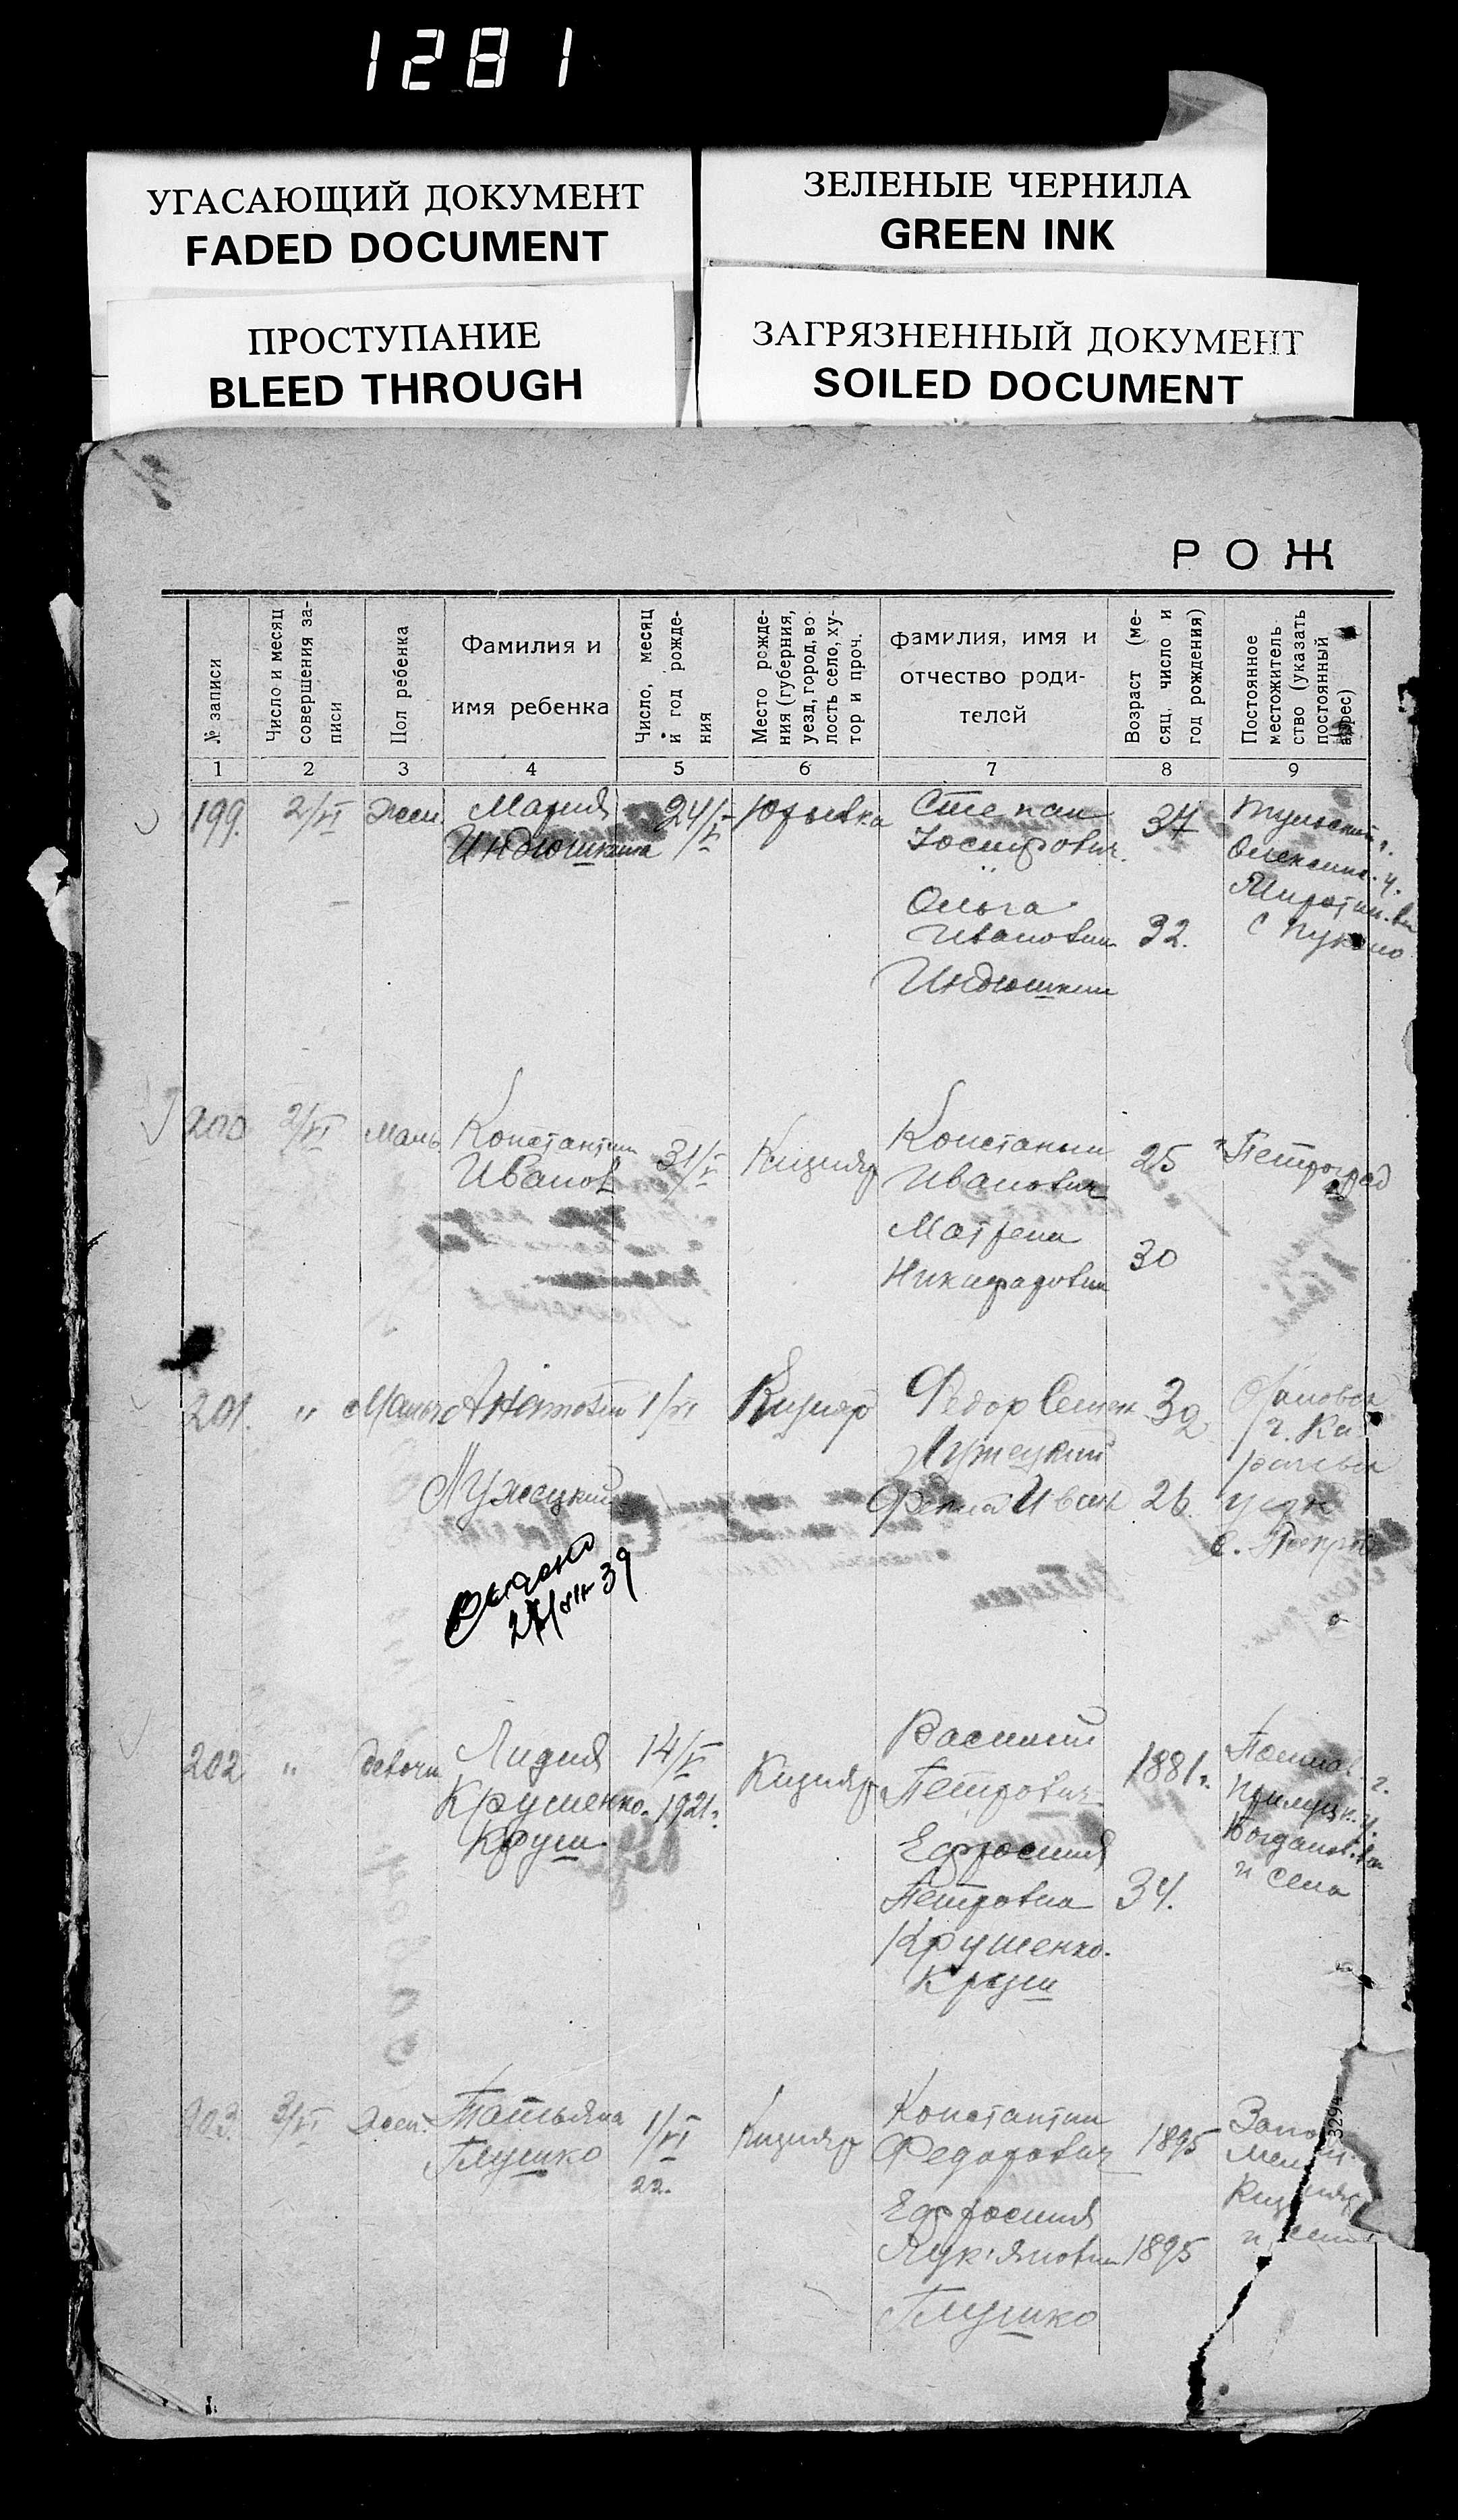 1281
УГАСАЮЩИЙ ДОКУМЕНТ
FADED DOCUMENT
ЗЕЛЕНЫЕ ЧЕРНИЛА
GREEN INK
ПРОСТУПАНИЕ
BLEED THROUGH
ЗАГРЯЗНЕННЫЙ ДОКУМЕНТ
SOILED DOCUMENT
РОЖ
№ записи
Число и месяц
совершения за-
писи
Пол ребенка
Фамилия и
имя ребенка
Число, месяц
и год рожде-
ния
Место рожде-
ния (губерния,
уезд, город, во-
лость село, ху-
тор и проч.
фамилия, имя и
отчество роди-
телей
Возраст (ме-
сяц, число и
год рождения)
Постоянное
местожитель-
ство (указать
постоянный
адрес)
1 2 3 4 5 6 7 8 9
199. 2/VI Жен
Мария
Индюшкина
24/V
Юрьевка
Степан
Иосифович
37
Ольга
Ивановн
32.
Индюшкин
200 2/VI Маль
Константин
Иванов
31/V
Кизияр
Константин
Иванович
25
Петроград
Матрена
Никифоровн
30
201. "
Мальч
1/VI
Кизияр
Федор Семен
32
Лужецкий
Иван 26.
Лужецкий
уезд
с. Петров
39
202 " девочк
Лидия
Крушенко-
Круш.
14/V
1921г.
Кизияр
Василий
Петрович
1881г.
Ефросиния
Петровна
34.
Крушенко-
Круш
Полтав. г.
Прилуцк. у.
и села
203. 3/VI Жен.
Татьяна
Глушко
1/VI
22.
Кизияр
Константин
Федорович
1895
Ефросиния
Лук'яновн
1895
Глушко
3294